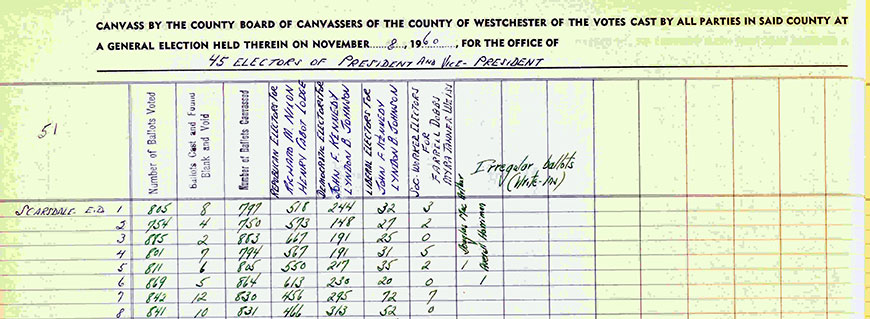 CANVASS BY THE COUNTY BOARD OF CANVASSERS OF THE COUNTY OF WESTCHESTER OF THE VOTES CAST BY ALL PARTIES IN SAID COUNTY AT
A GENERAL ELECTION HELD THEREIN ON NOVEMBER 8, 1960, FOR THE OFFICE OF
45 ELECTORS OF PRESIDENT AND VICE-PRESIDENT
51
Number of Ballots Voted
Ballots Cast and Found
Blank and Void
Number of Ballots Canvassed
REPUBLICAN ELECTORS FOR
RICHARD M. NIXON
HENRY CABOT LODGE
DEMOCRATIC ELECTORS FOR
JOHN F. KENNEDY
LYNDON B. JOHNSON
LIBERAL ELECTORS FOR
JOHN F. KENNEDY
LYNDON B. JOHNSON
SOC-WORKER ELECTORS
FOR
FARRELL DOBBS
MYRA TANNER WEISS
Irregular ballots
(Write-IN)
Douglas MacArthur
Averell Harriman
SCARSDALE E.D. 1 805 8 797 518 244 32 3
2 754 4 750 573 148 27 2
3 885 2 883 667 191 25 0
4 801 7 794 567 191 31 5
5 811 6 805 550 217 35 2 1
6 869 5 864 613 230 20 0 1
7 842 12 830 456 295 72 7
8 841 10 831 466 313 52 0